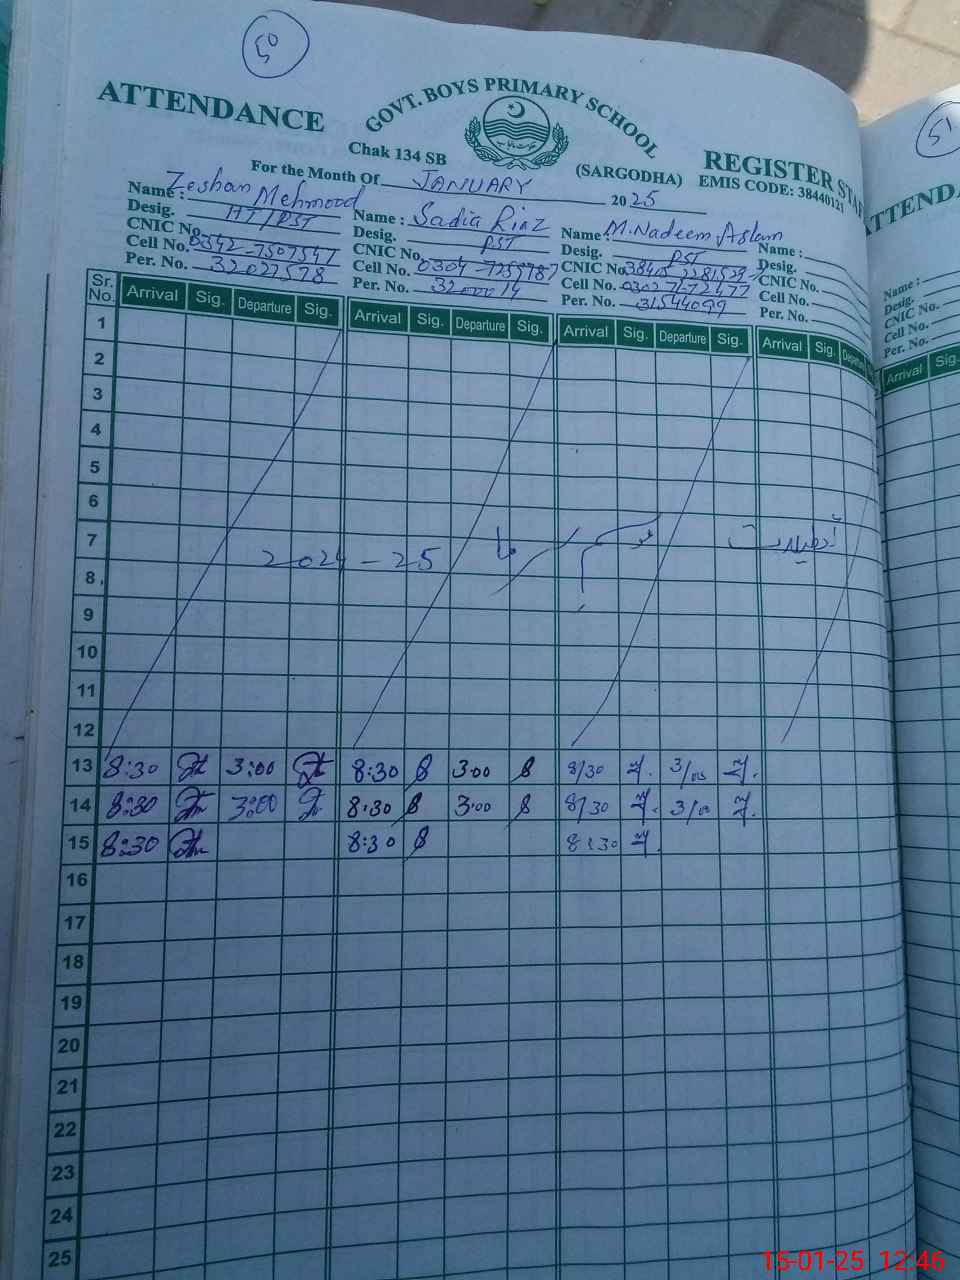 ۵۰
ATTENDANCE GOVT. BOYS PRIMARY SCHOOL REGISTER STAF
Chak 134 SB (SARGODHA) EMIS CODE: 38440121
For the Month Of JANUARY 2025
Name : Zeshan Mehmood
Desig. HT/PST
CNIC No.
Cell No. 0342-7507547
Per. No. 32027578
Name : Sadia Riaz
Desig. PST
CNIC No.
Cell No. 0304-7259787
Per. No. 3200014
Name : M.Nadeem Aslam
Desig. PST
CNIC No. 38405
Cell No. 0302
Per. No. 31544099
Name :
Desig.
CNIC No.
Cell No.
Per. No.
Sr. No. Arrival Sig. Departure Sig. Arrival Sig. Departure Sig. Arrival Sig. Departure Sig. Arrival Sig.
1
2
3
4
5
6
7 تعطیلات موسم سرما 2024-25
8
9
10
11
12
13 8:30 3:00 8:30 3:00 8/30 3/00
14 8:30 3:00 8:30 3:00 8/30 3/00
15 8:30 8:30 8:30
16
17
18
19
20
21
22
23
24
25
۵۱
ATTENDA
Name :
Desig.
CNIC No.
Cell No.
Per. No.
Arrival Sig.
15-01-25 12:46